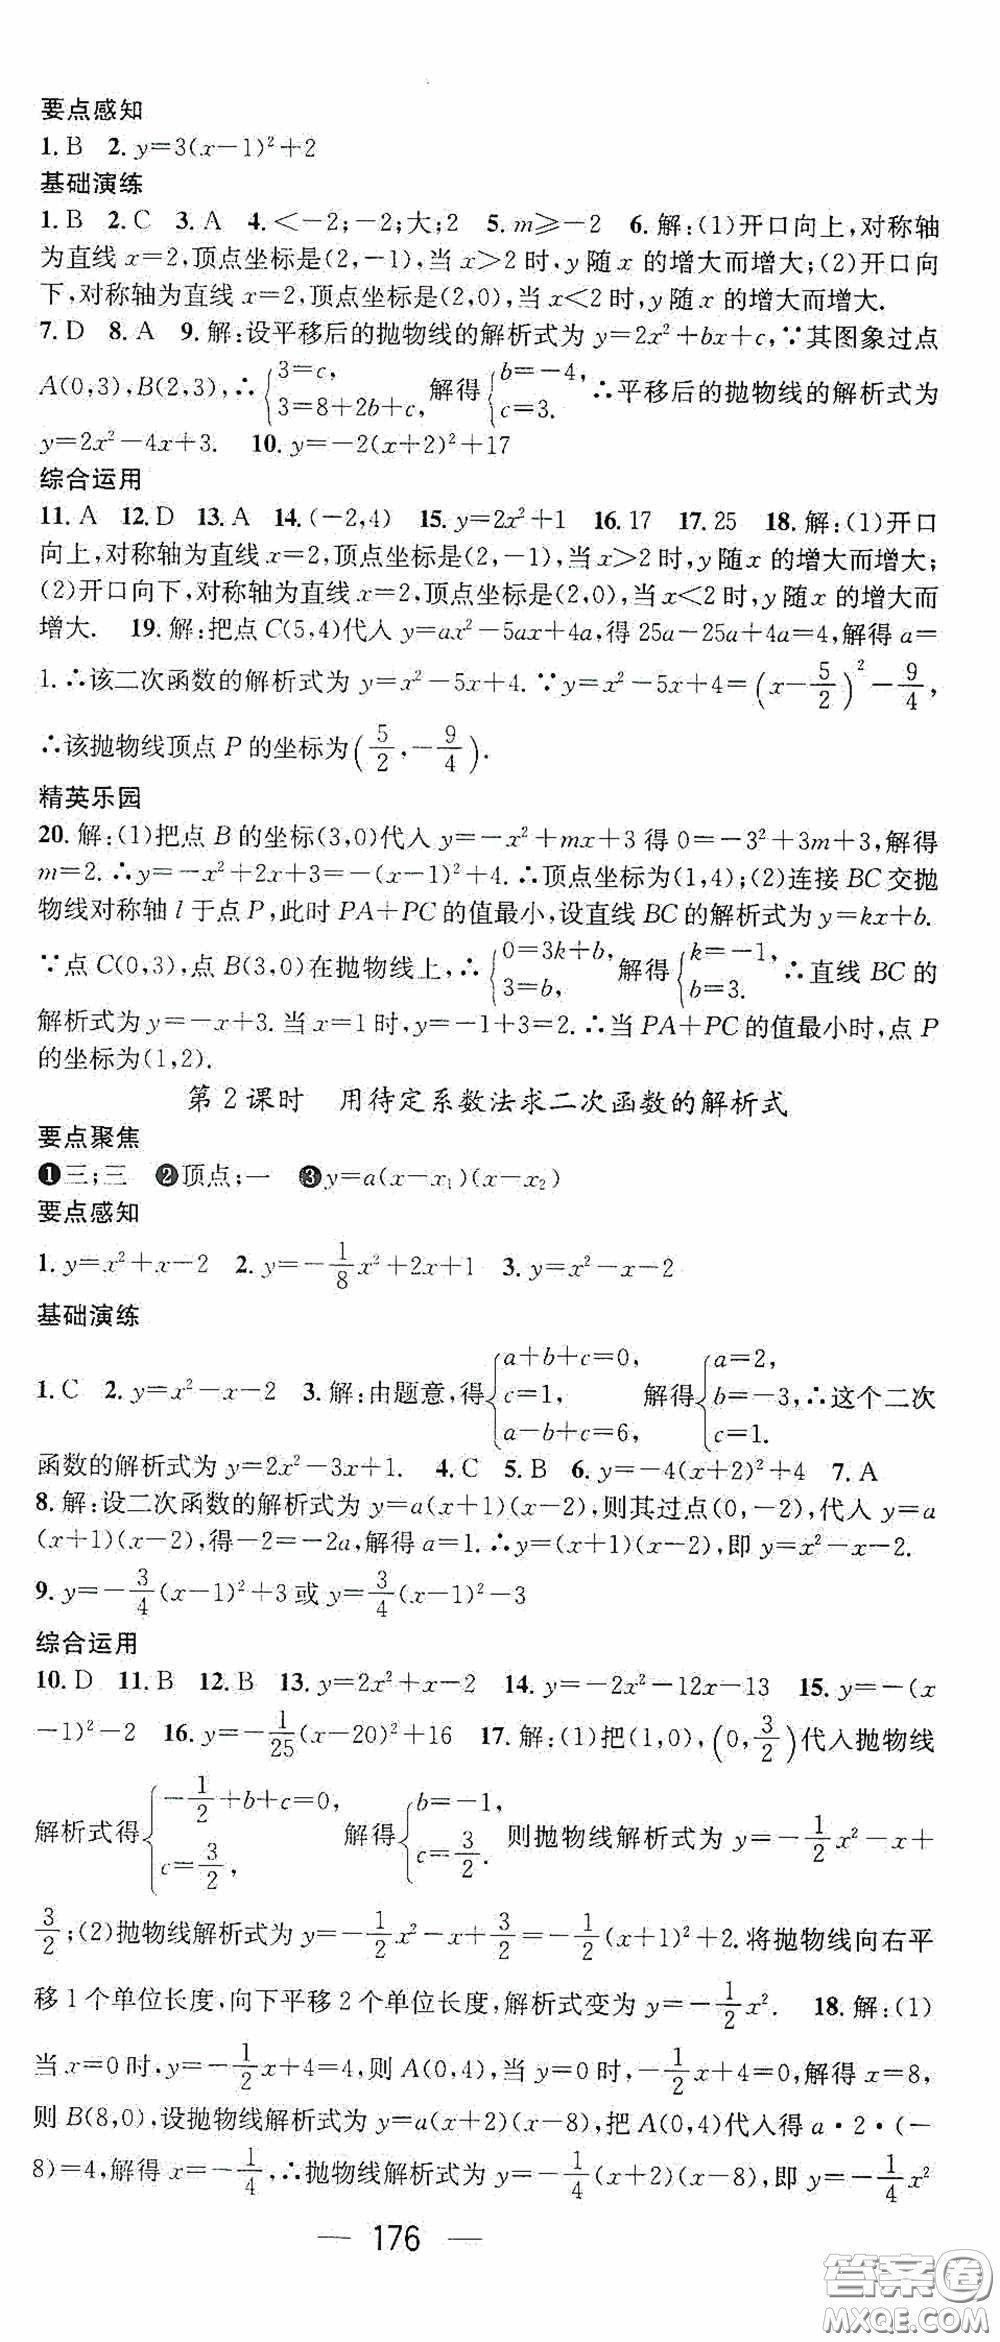 要点感知
1. B 2. y=3(x-1)²+2
基础演练
1. B 2. C 3. A 4. <-2;-2;大;2 5. m≥-2 6. 解:(1)开口向上,对称轴
为直线 x=2,顶点坐标是(2,-1),当 x>2 时,y 随 x 的增大而增大;(2)开口向
下,对称轴为直线 x=2,顶点坐标是(2,0),当 x<2 时,y 随 x 的增大而增大.
7. D 8. A 9. 解:设平移后的抛物线的解析式为 y=2x²+bx+c,∵其图象过点
A(0,3),B(2,3),∴{3=c, 3=8+2b+c, 解得{b=-4, c=3. ∴平移后的抛物线的解析式为
y=2x²-4x+3. 10. y=-2(x+2)²+17
综合运用
11. A 12. D 13. A 14. (-2,4) 15. y=2x²+1 16. 17 17. 25 18. 解:(1)开口
向上,对称轴为直线 x=2,顶点坐标是(2,-1),当 x>2 时,y 随 x 的增大而增大;
(2)开口向下,对称轴为直线 x=2,顶点坐标是(2,0),当 x<2 时,y 随 x 的增大而
增大. 19. 解:把点 C(5,4)代入 y=ax²-5ax+4a,得 25a-25a+4a=4,解得 a=
1.∴该二次函数的解析式为 y=x²-5x+4.∵y=x²-5x+4=(x-5/2)²-9/4,
∴该抛物线顶点 P 的坐标为(5/2,-9/4).
精英乐园
20. 解:(1)把点 B 的坐标(3,0)代入 y=-x²+mx+3 得 0=-3²+3m+3,解得
m=2.∴y=-x²+2x+3=-(x-1)²+4.∴顶点坐标为(1,4);(2)连接 BC 交抛
物线对称轴 l 于点 P,此时 PA+PC 的值最小,设直线 BC 的解析式为 y=kx+b.
∵点 C(0,3),点 B(3,0)在抛物线上,∴{0=3k+b, 3=b, 解得{k=-1, b=3. ∴直线 BC 的
解析式为 y=-x+3. 当 x=1 时,y=-1+3=2.∴当 PA+PC 的值最小时,点 P
的坐标为(1,2).
第 2 课时 用待定系数法求二次函数的解析式
要点聚焦
❶三;三 ❷顶点;一 ❸y=a(x-x₁)(x-x₂)
要点感知
1. y=x²+x-2 2. y=-1/8x²+2x+1 3. y=x²-x-2
基础演练
1. C 2. y=x²-x-2 3. 解:由题意,得{a+b+c=0, c=1, a-b+c=6, 解得{a=2, b=-3, c=1. ∴这个二次
函数的解析式为 y=2x²-3x+1. 4. C 5. B 6. y=-4(x+2)²+4 7. A
8. 解:设二次函数的解析式为 y=a(x+1)(x-2),则其过点(0,-2),代入 y=a
(x+1)(x-2),得-2=-2a,解得 a=1.∴y=(x+1)(x-2),即 y=x²-x-2.
9. y=-3/4(x-1)²+3 或 y=3/4(x-1)²-3
综合运用
10. D 11. B 12. B 13. y=2x²+x-2 14. y=-2x²-12x-13 15. y=-(x
-1)²-2 16. y=-1/25(x-20)²+16 17. 解:(1)把(1,0),(0,3/2)代入抛物线
解析式得{-1/2+b+c=0, c=3/2, 解得{b=-1, c=3/2. 则抛物线解析式为 y=-1/2x²-x+
3/2;(2)抛物线解析式为 y=-1/2x²-x+3/2=-1/2(x+1)²+2.将抛物线向右平
移 1 个单位长度,向下平移 2 个单位长度,解析式变为 y=-1/2x². 18. 解:(1)
当 x=0 时,y=-1/2x+4=4,则 A(0,4),当 y=0 时,-1/2x+4=0,解得 x=8,
则 B(8,0),设抛物线解析式为 y=a(x+2)(x-8),把 A(0,4)代入得 a·2·(-
8)=4,解得 x=-1/4,∴抛物线解析式为 y=-1/4(x+2)(x-8),即 y=-1/4x²
— 176 —
答案圈
MXQE.COM